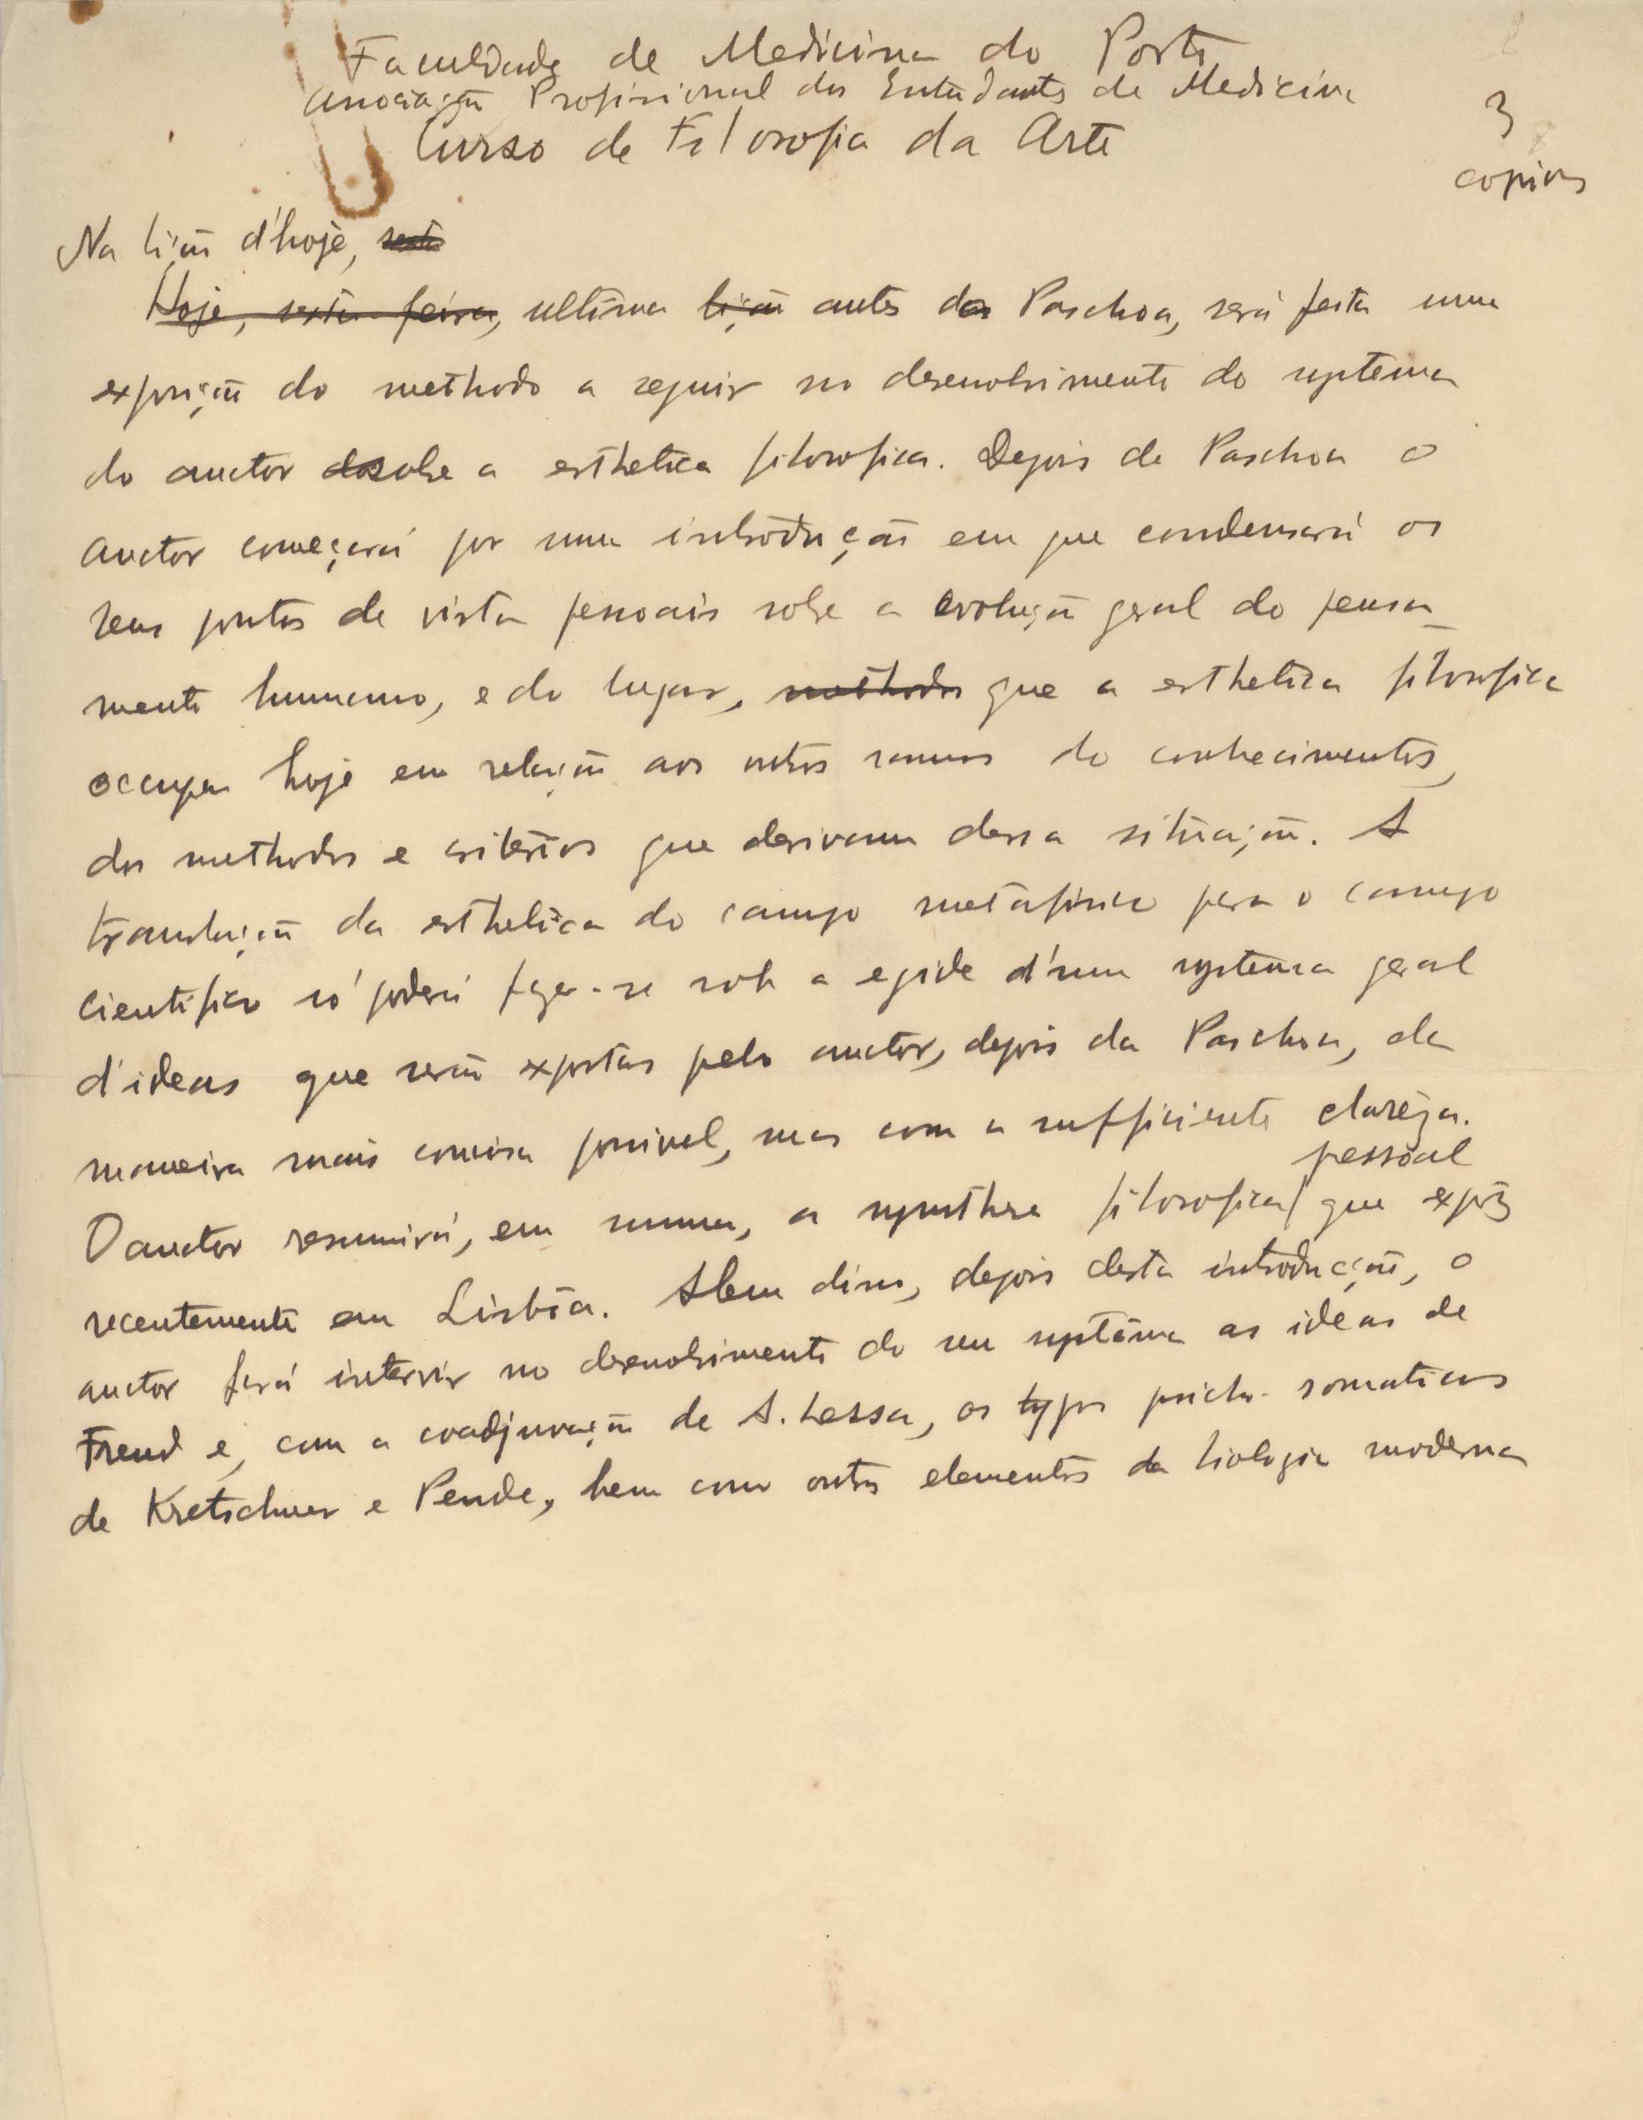 Faculdade de Medicina do Porto
Associação Profissional dos Estudantes de Medicina
Curso de Filosofia da Arte
3
copias
Na lição d'hoje, sexta
Hoje, sexta feira, ultima lição antes da Paschoa, será feita uma
exposição do methodo a seguir no desenvolvimento do systema
do auctor sobre a esthetica filosofica. Depois de Paschoa o
auctor começará por uma introdução em que condensará os
seus pontos de vista pessoais sobre a evolução geral do pensa-
mento humano, e do lugar, methodos que a esthetica filosofica
occupa hoje em relação aos outros ramos do conhecimentos,
dos methodos e criterios que derivam dessa situação. A
translação da esthetica do campo metafisico para o campo
cientifico só poderá fazer-se sob a egide d'um systema geral
d'ideas que serão expostas pelo auctor, depois da Paschoa, da
maneira mais concisa possivel, mas com a sufficiente clareza.
pessoal
O auctor resumirá, em summa, a synthese filosofica que expôz
recentemente em Lisbôa. Alem disso, depois desta introducção, o
auctor fará intervir no desenvolvimento do seu systema as ideas de
Freud e, com a coadjuvação de A. Lessa, os typos psicho-somaticos
de Kretschmer e Pende, bem como outros elementos da biologia moderna